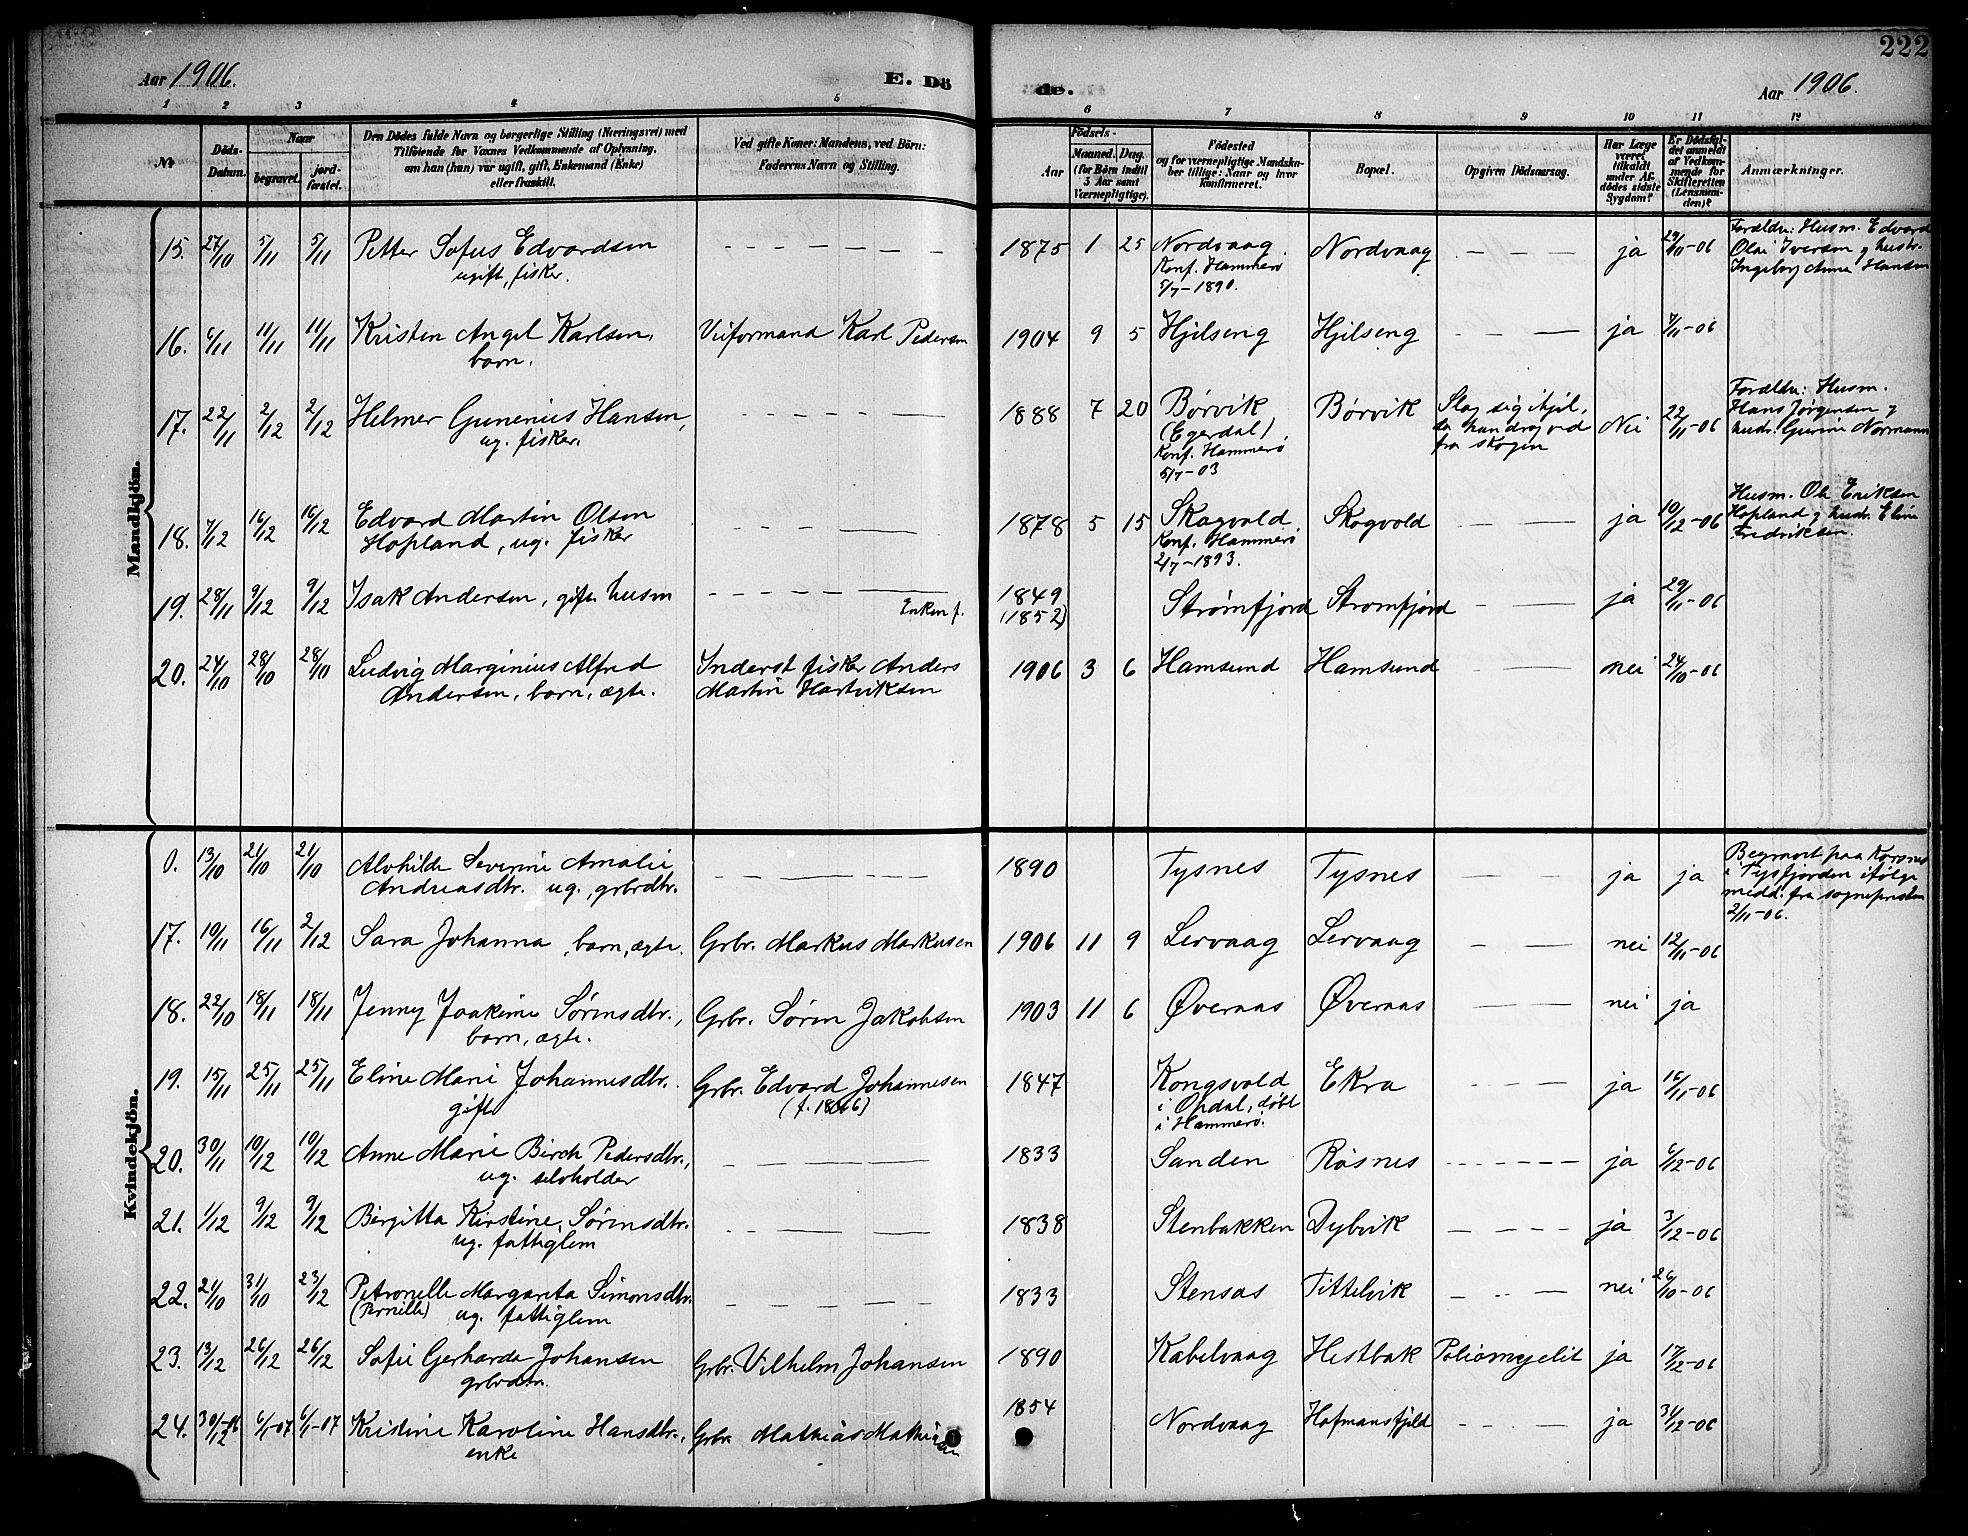 222
Aar 1906. E. Dö de. Aar 1906.
1 2 3 4 5 6 7 8 9 10 11 12
№ Döds-Datum. Naar begravet. jord-fæstet. Den Dödes fulde Navn og borgerlige Stilling (Næringsvei) med Tilföiende for Voxnes Vedkommende af Oplysning, om han (hun) var ugift, gift, Enkemand (Enke) eller fraskilt. Ved gifte Koner: Mandens, ved Börn: Faderens Navn og Stilling. Födsels- Aar Maaned. Dag. (for Börn indtil 5 Aar samt Værnepligtige). Födested og for værnepligtige Mandskaber tillige: Naar og hvor konfirmeret. Bopæl. Opgiven Dödsaarsag. Har Læge været tilkaldt under Afdödes sidste Sygdom? Er Dödsfaldet anmeldt af Vedkommende for Skifteretten (Lensmanden)? Anmærkninger.
Mandkjön.
15. 27/10 5/11 5/11 Petter Sofus Edvardsen 1875 1 25 Nordvaag Nordvaag ja 29/10-06 Forældre: Husm. Edvard
ugift, fisker. Konf. Hammerø Olai Iversen g hustr.
5/7-1890. Ingeborg Anna Hansen
16. 6/11 11/11 11/11 Kristen Angel Karlsen, Veiformand Karl Pedersen 1904 9 5 Hjilseng Hjilseng ja 7/11-06
barn.
17. 22/11 2/12 2/12 Helmer Gunerius Hansen, 1888 7 20 Børvik Børvik Slog sig ihjel, Nei 22/11-06 Forældre: Husm.
ug. fisker. (Egerdal) da han drog ved Hans Jørgensen g
Konf. Hammerø fra skogen hustr. Gurine Normann
5/7-03
18. 7/12 16/12 16/12 Edvard Martin Olsen 1878 5 15 Skogvold Skogvold ja 10/12-06 Husm. Ole Eriksen
Hopland, ug. fisker Konf. Hammerø Hopland g hustr. Eline
2/7-1893. Fredriksen.
19. 28/11 9/12 9/12 Isak Andersen, gift husm Enken f. 1849 Strømfjord Strømfjord ja 29/11-06
(1852)
20. 24/10 28/10 28/10 Ludvig Marginius Alfred Inderst fisker Anders 1906 3 6 Hamsund Hamsund nei 24/10-06
Andersen, barn, ægte. Martin Hartviksen
Kvindekjön.
0. 13/10 21/10 21/10 Alvhilde Severine Amalie 1890 Tysnes Tysnes ja ja Begravet paa Korsnes
Andreasdtr. ug., grbrdtr. i Tysfjorden ifølge
medd. fra sognepresten
2/11-06.
17. 10/11 16/11 2/12 Sara Johanna, barn, ægte. Grbr. Markus Markusen 1906 11 9 Lervaag Lervaag nei 12/11-06
18. 22/10 18/11 18/11 Jenny Joakime Sørensdtr., Grbr. Søren Jakobsen 1903 11 6 Øveraas Øveraas nei ja
barn, ægte.
19. 15/11 25/11 25/11 Eline Marie Johannesdtr. Grbr. Edvard Johannesen 1847 Kongsvold Ekra ja 16/11-06
gift (f. 1846) i Opdal, døbt
i Hammerø.
20. 30/11 10/12 10/12 Anne Marie Birch Pedersdtr., 1833 Sanden Røsnes ja 6/12-06
ug. selvholder
21. 1/12 9/12 9/12 Birgitta Kirstine Sørensdtr. 1838 Stenbakken Dybvik ja 3/12-06
ug. fattiglem
22. 21/10 31/10 23/12 Petronelle Margareta Simonsdtr. 1833 Stensaas Tittelvik nei 26/10-06
(Pernille) ug. fattiglem
23. 13/12 26/12 26/12 Sofie Gerharda Johansen Grbr. Vilhelm Johansen 1890 Kabelvaag Hestbak Poliomyelit ja 17/12-06
grbrdtr.
24. 30/12-06 6/1-07 6/1-07 Kristine Karoline Hansdtr., Grbr. Mathias Mathisen 1854 Nordvaag Hofmansfjeld ja 31/12-06
enke